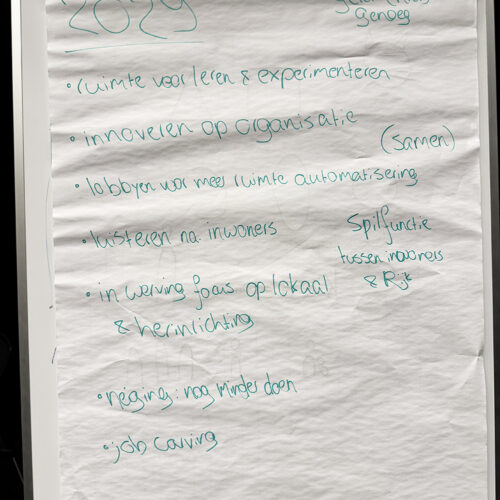 2029
Genoeg
• ruimte voor leren & experimenteren
• innoveren op organisatie
(samen)
• lobbyen voor meer ruimte automatisering
• luisteren na inwoners
Spilfunctie
tussen inwoners
& Rijk
• in werving focus op lokaal
& herinrichting
• neiging: nog minder doen
• job carving